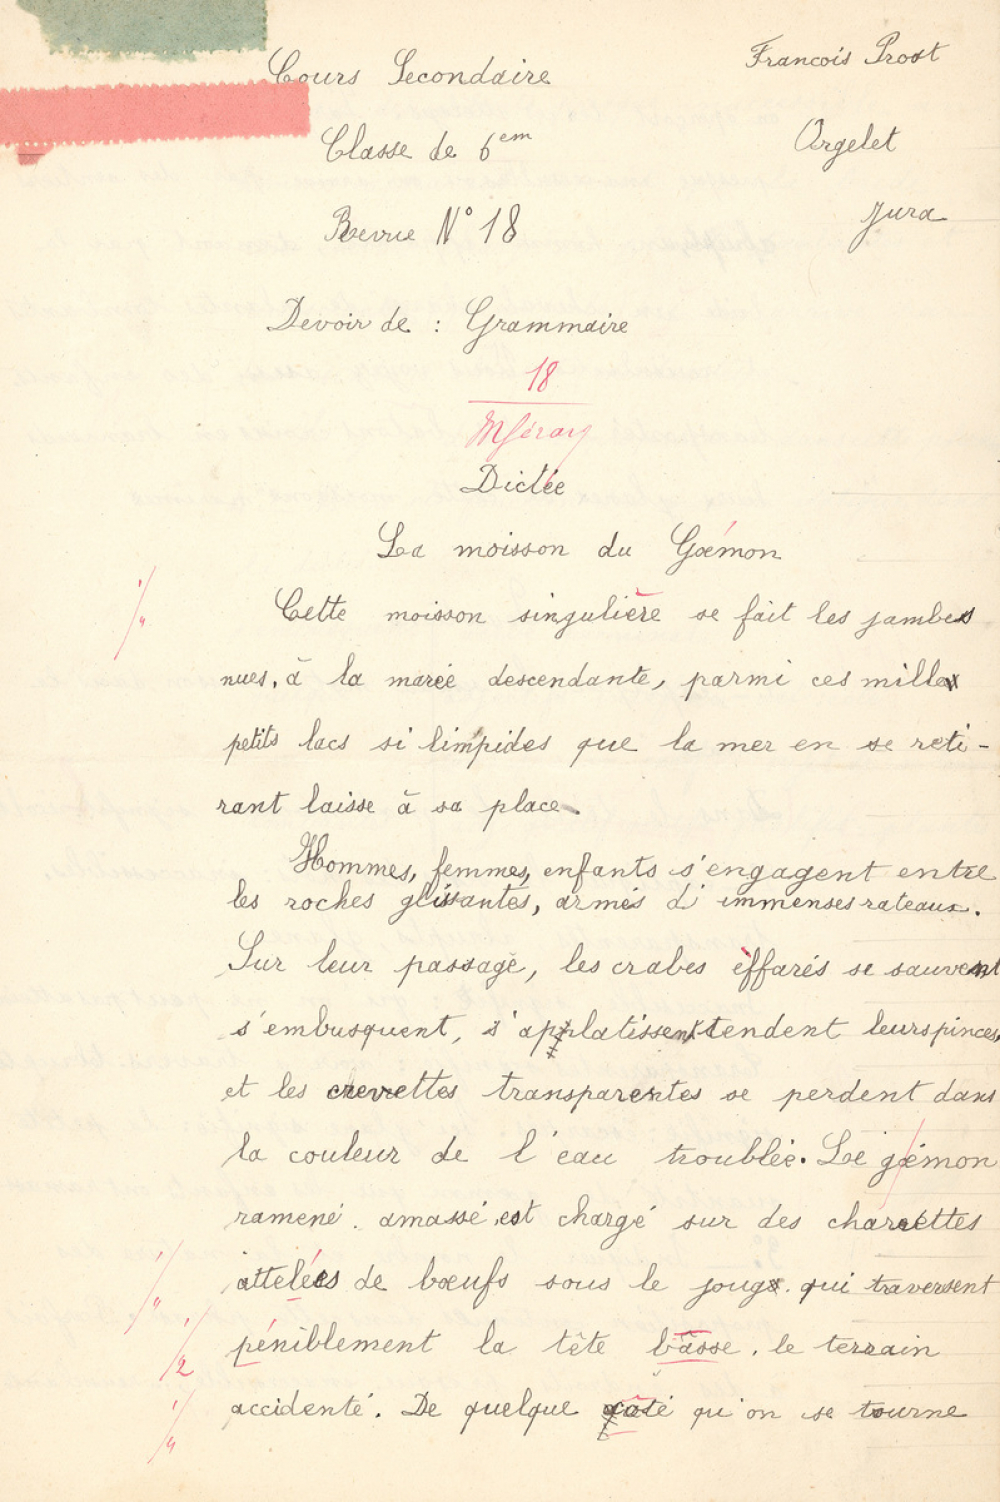 Cours Secondaire
François Prost
Classe de 6em
Argelet
Jura
Revue N° 18
Devoir de : Grammaire
18
Dictée
La moisson du Goémon
Cette moisson singulière se fait les jambes
nues, à la marée descendante, parmi ces mille
petits lacs si limpides que la mer en se reti-
rant laisse à sa place.
Hommes, femmes, enfants s'engagent entre
les roches glissantes, armés d'immenses rateaux.
Sur leur passage, les crabes effarés se sauvent
s'embusquent, s'applatissent tendent leurs pinces,
et les crevettes transparentes se perdent dans
la couleur de l'eau troublée. Le goémon
ramené. amassé, est chargé sur des charrettes
attelées de bœufs sous le joug. qui traversent
péniblement la tête bâsse. le terrain
accidenté. De quelque côté qu'on se tourne
1/4
1/4
1/2
1/4